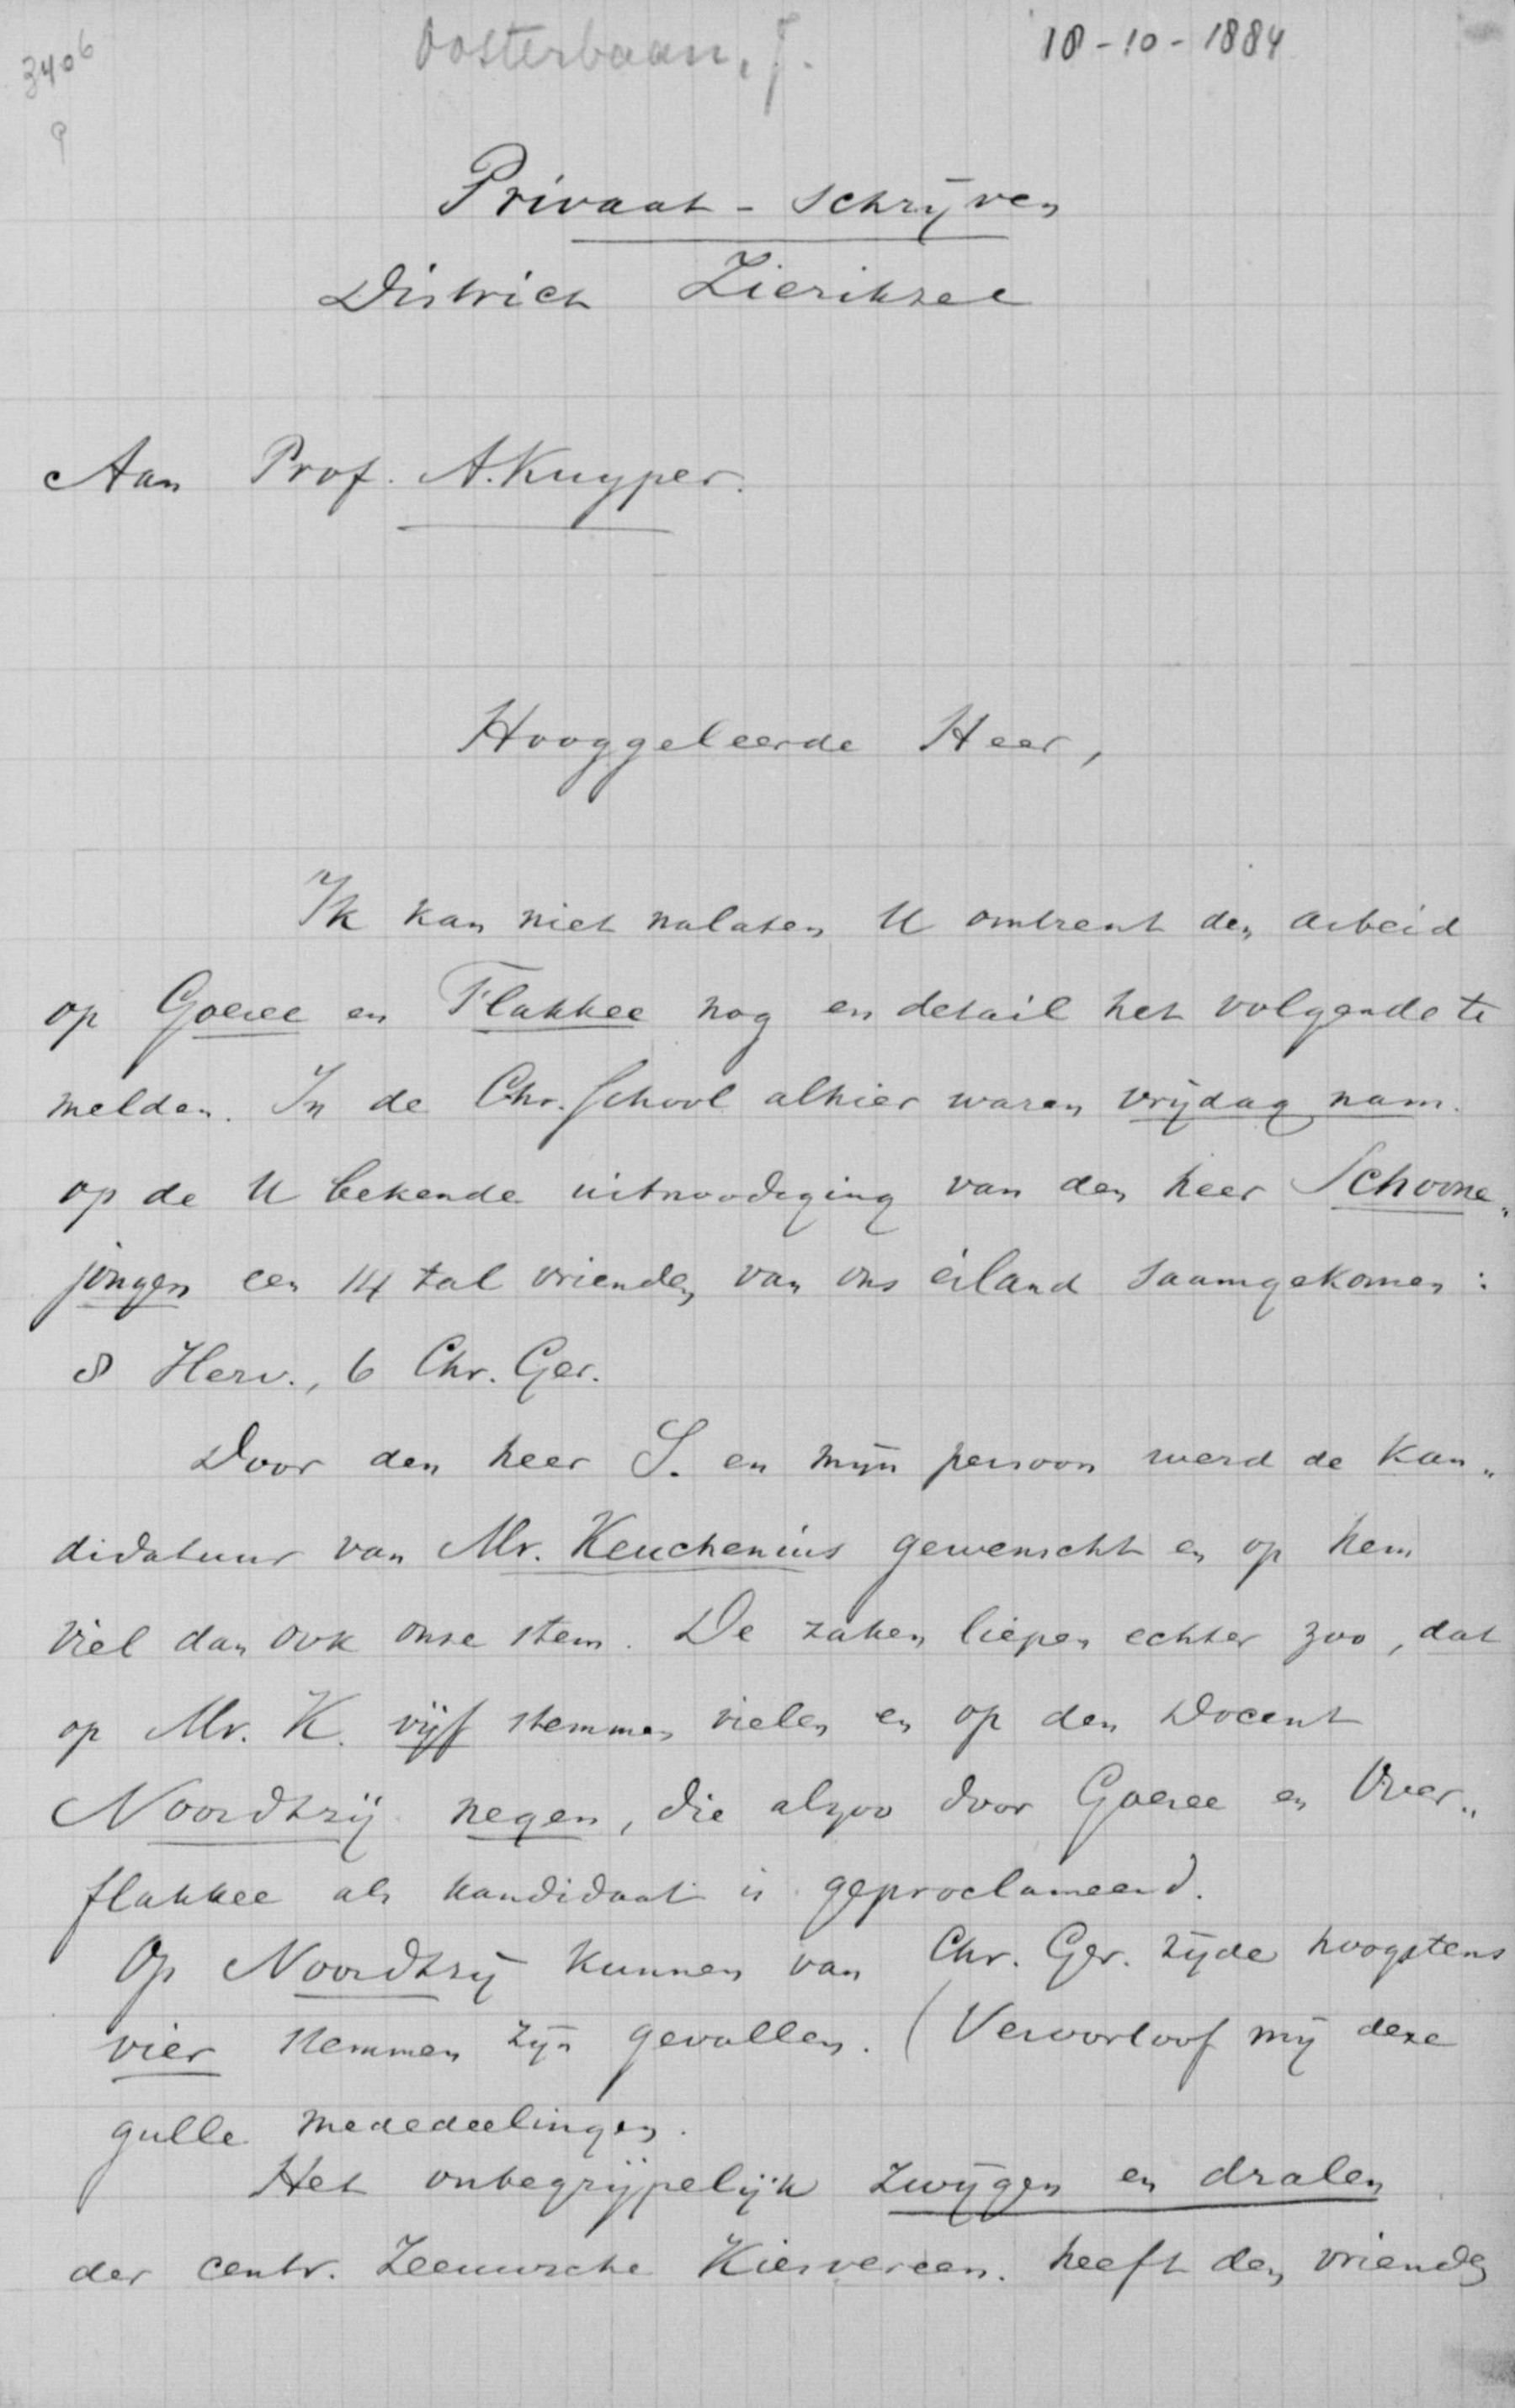 3406
Oosterbaan, J.
18-10-1884
9
Privaat - schrijven
District Zierikzee
Aan Prof. A. Kuyper.
Hooggeleerde Heer,
Ik kan niet nalaten U omtrent den arbeid
op Goeree en Flakkee nog en detail het volgende te
melden. In de Chr. School alhier waren vrijdag nam.
op de U bekende uitnoodiging van den heer Schoone„
jongen een 14 tal vrienden van ons eiland saamgekomen:
8 Herv., 6 Chr. Ger.
Door den heer S. en mijn persoon werd de kan„
didatuur van Mr. Keuchenius gewenscht en op hem
viel dan ook onze stem. De zaken liepen echter zoo, dat
op Mr. K. vijf stemmen vielen en op den Docent
Noordtzij negen, die alzoo door Goeree en Over„
flakkee als kandidaat is geproclameerd.
Op Noordtzij kunnen van Chr. Ger. zijde hoogstens
vier stemmen zijn gevallen. (Veroorloof mij deze
gulle mededeelingen.
Het onbegrijpelijk zwijgen en dralen
der centr. Zeeuwsche Kiesvereen. heeft den vrienden